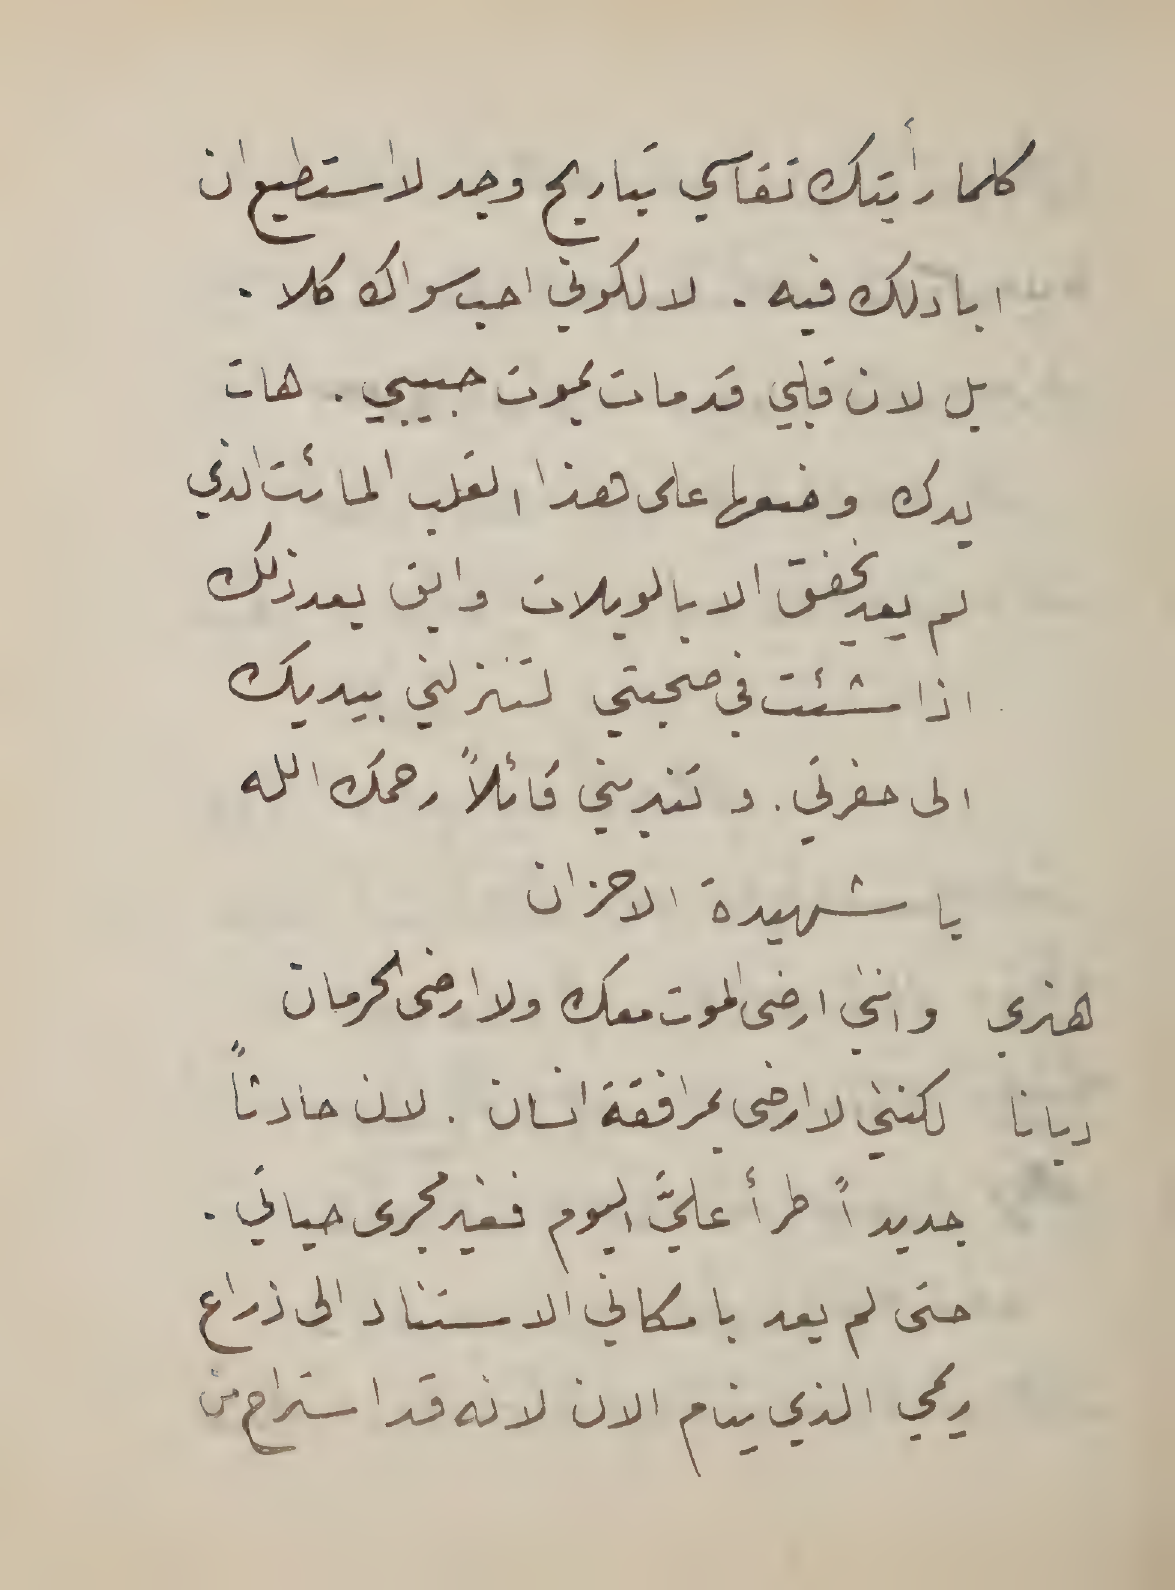 كلما رأيتك تقاسي تباريح وجد لا استطيع ان
ابادلك فيه . لا لكوني احب سواك كلا .
بل لان قلبي قد مات بموت حبيبي . هات
يدك وضعها على هذا القلب المائت الذي
لم يعد يخفق الا بالويلات وابق بعد ذلك
اذا شئت في صحبتي لتنزلني بيديك
الى حفرتي . و تندبني قائلاً رحمك الله
يا شهيدة الاحزان
هنري وانني ارضى الموت معك ولا ارضى الحرمان
ديانا لكنني لا ارضى بمرافقة انسان . لان حادثاً
جديداً طرأ عليَّ اليوم فغير مجرى حياتي .
حتى لم يعد بامكاني الاستناد الى ذراع
ريمي الذي ينام الان لانه قد استراح من